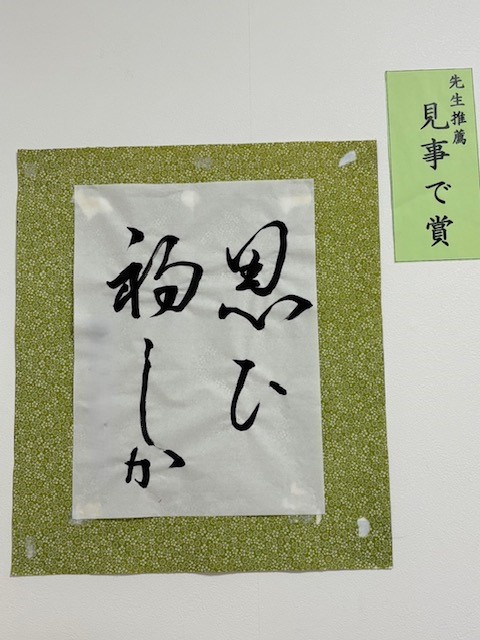 先生推薦
見事で賞
思ひ
初しか